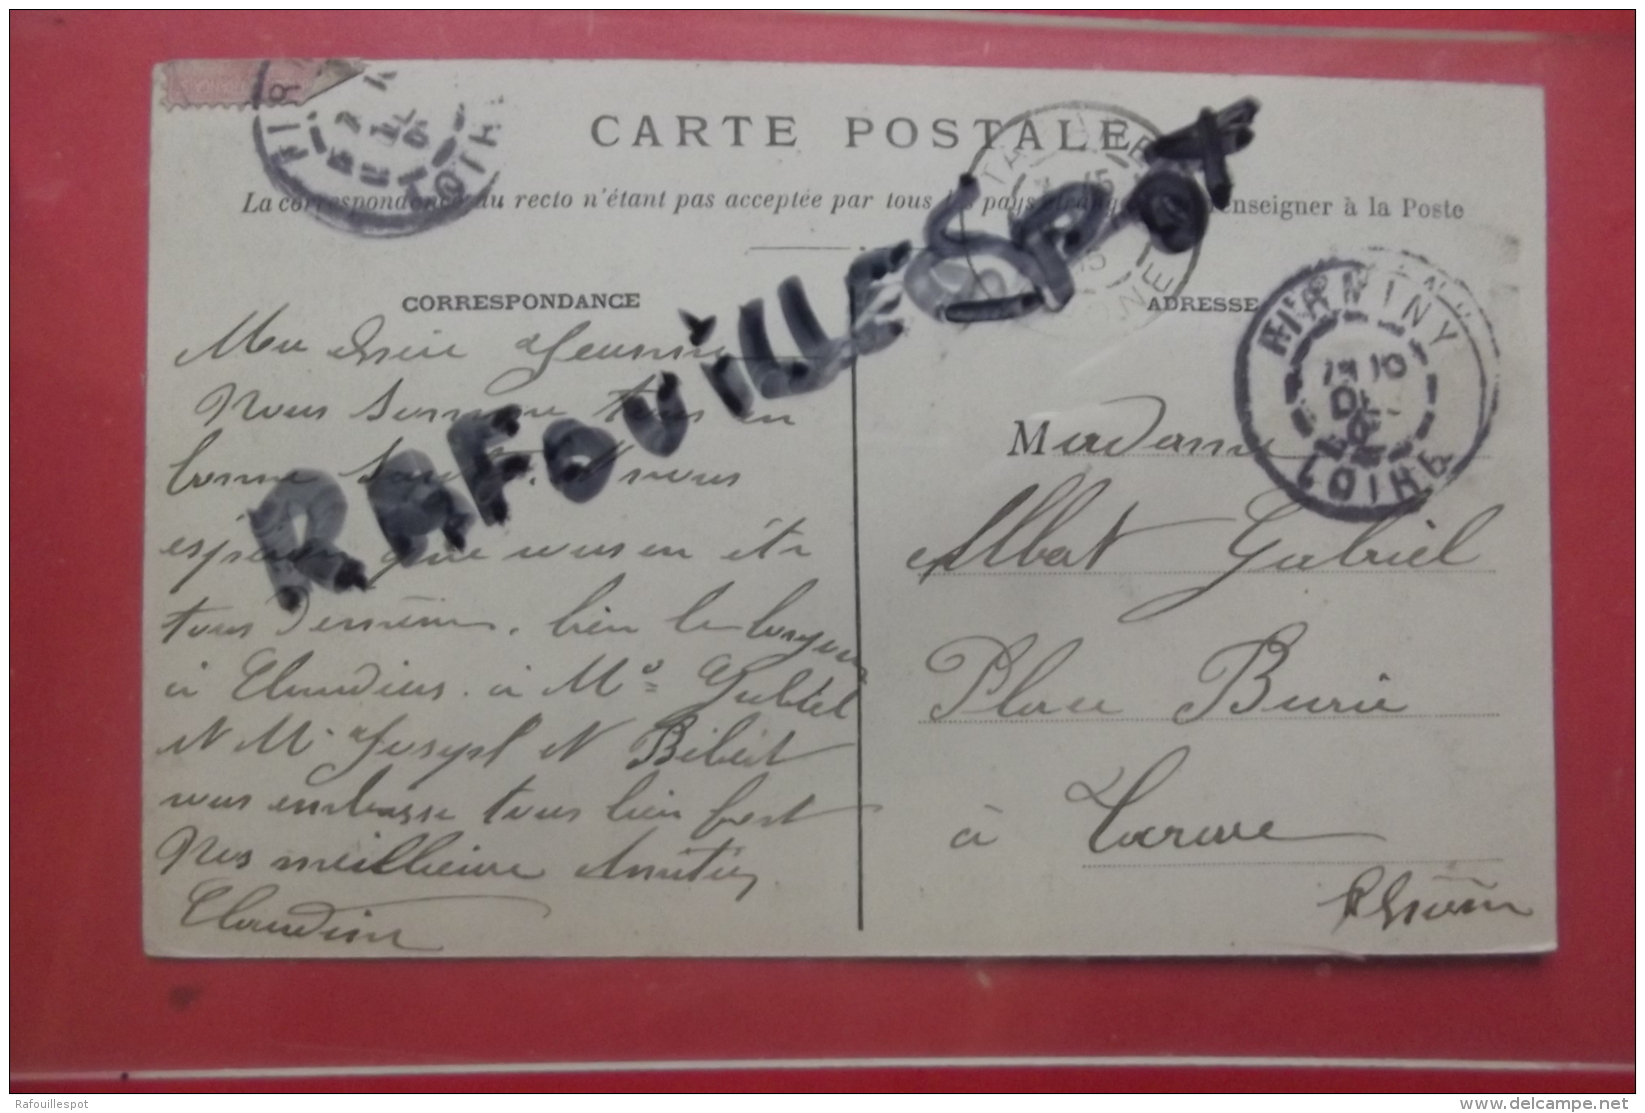 CARTE POSTALE
La correspondance du recto n'étant pas acceptée par tous les pays enseigner à la Poste
CORRESPONDANCE
ADRESSE
RAFOUILLESPOT
RIRNINY
LOIRE
Nous sommes tous en
bonne Santé. et nous
espérons que vous en ête
tous de même. bien le bonjour
à Claudius. à Mo Gabriel
et M. Joseph et Bébert
vous embrasse tous bien fort
Nos meilleure Amitiés
Claudine
Madame
Albert Gabriel
Place Burie
à Tarare
Rhône
Rafouillespot
delcampe.net